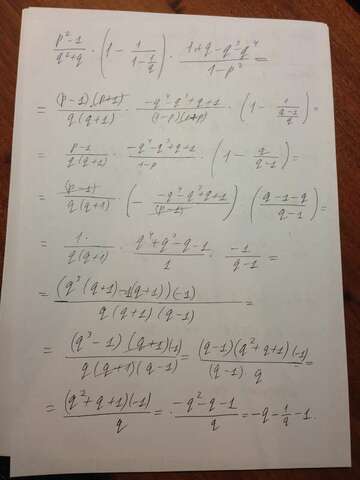 \frac{p^2-1}{q^2+q} \cdot \left(1 - \frac{1}{1-\frac{1}{q}}\right) \cdot \frac{1+q-q^3-q^4}{1-p^2} =
= \frac{(p-1)(p+1)}{q(q+1)} \cdot \frac{-q^4-q^3+q+1}{(1-p)(1+p)} \cdot \left(1 - \frac{1}{\frac{q-1}{q}}\right) =
= \frac{p-1}{q(q+1)} \cdot \frac{-q^4-q^3+q+1}{1-p} \cdot \left(1 - \frac{q}{q-1}\right) =
= \frac{(p-1)}{q(q+1)} \cdot \left(- \frac{-q^4-q^3+q+1}{(p-1)}\right) \cdot \left(\frac{q-1-q}{q-1}\right) =
= \frac{1}{q(q+1)} \cdot \frac{q^4+q^3-q-1}{1} \cdot \frac{-1}{q-1} =
= \frac{(q^3(q+1)-1(q+1))(-1)}{q(q+1)(q-1)} =
= \frac{(q^3-1)(q+1)(-1)}{q(q+1)(q-1)} = \frac{(q-1)(q^2+q+1)(-1)}{(q-1) q} =
= \frac{(q^2+q+1)(-1)}{q} = \frac{-q^2-q-1}{q} = -q-\frac{1}{q}-1.